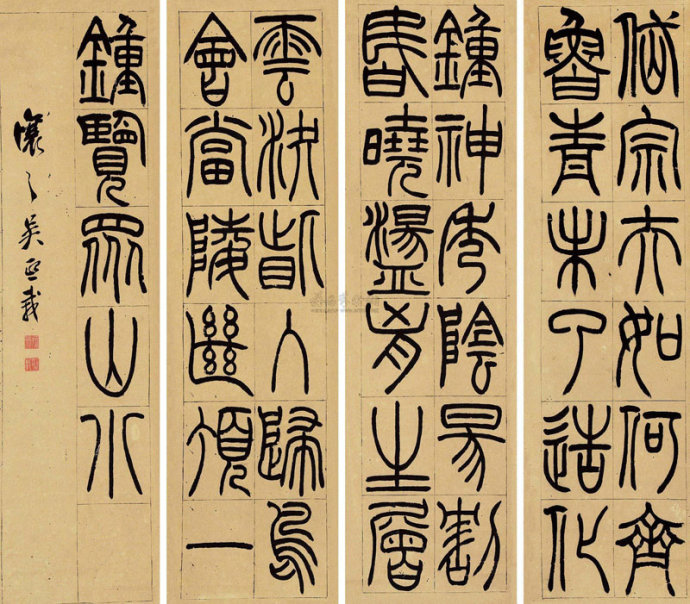 岱宗夫如何齊
魯青未了造化
鍾神秀陰昜割
昏曉盪胸生層
雲決眥入歸鳥
會當陵絕頂一
鍾覽眾山小
讓之吳熙載